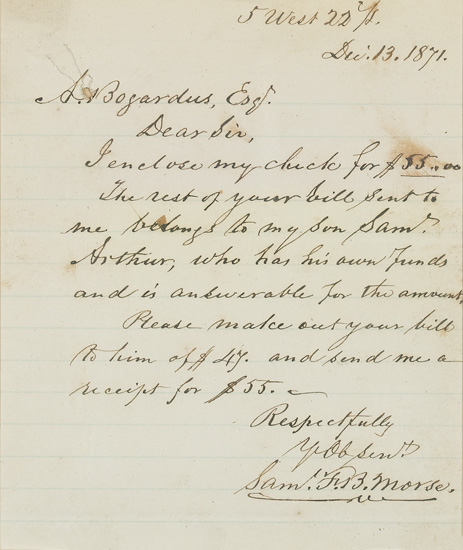 5 West 22d St.
Dec. 13. 1871.
A. Bogardus, Esqr.
Dear Sir,
I enclose my check for $55..00
The rest of your bill sent to
me belongs to my son Saml.
Arthur, who has his own funds
and is answerable for the amount,
Please make out your bill
to him of $47. and send me a
receipt for $55. –
Respectfully
Yr Ob Servt.
Saml. F. B. Morse.